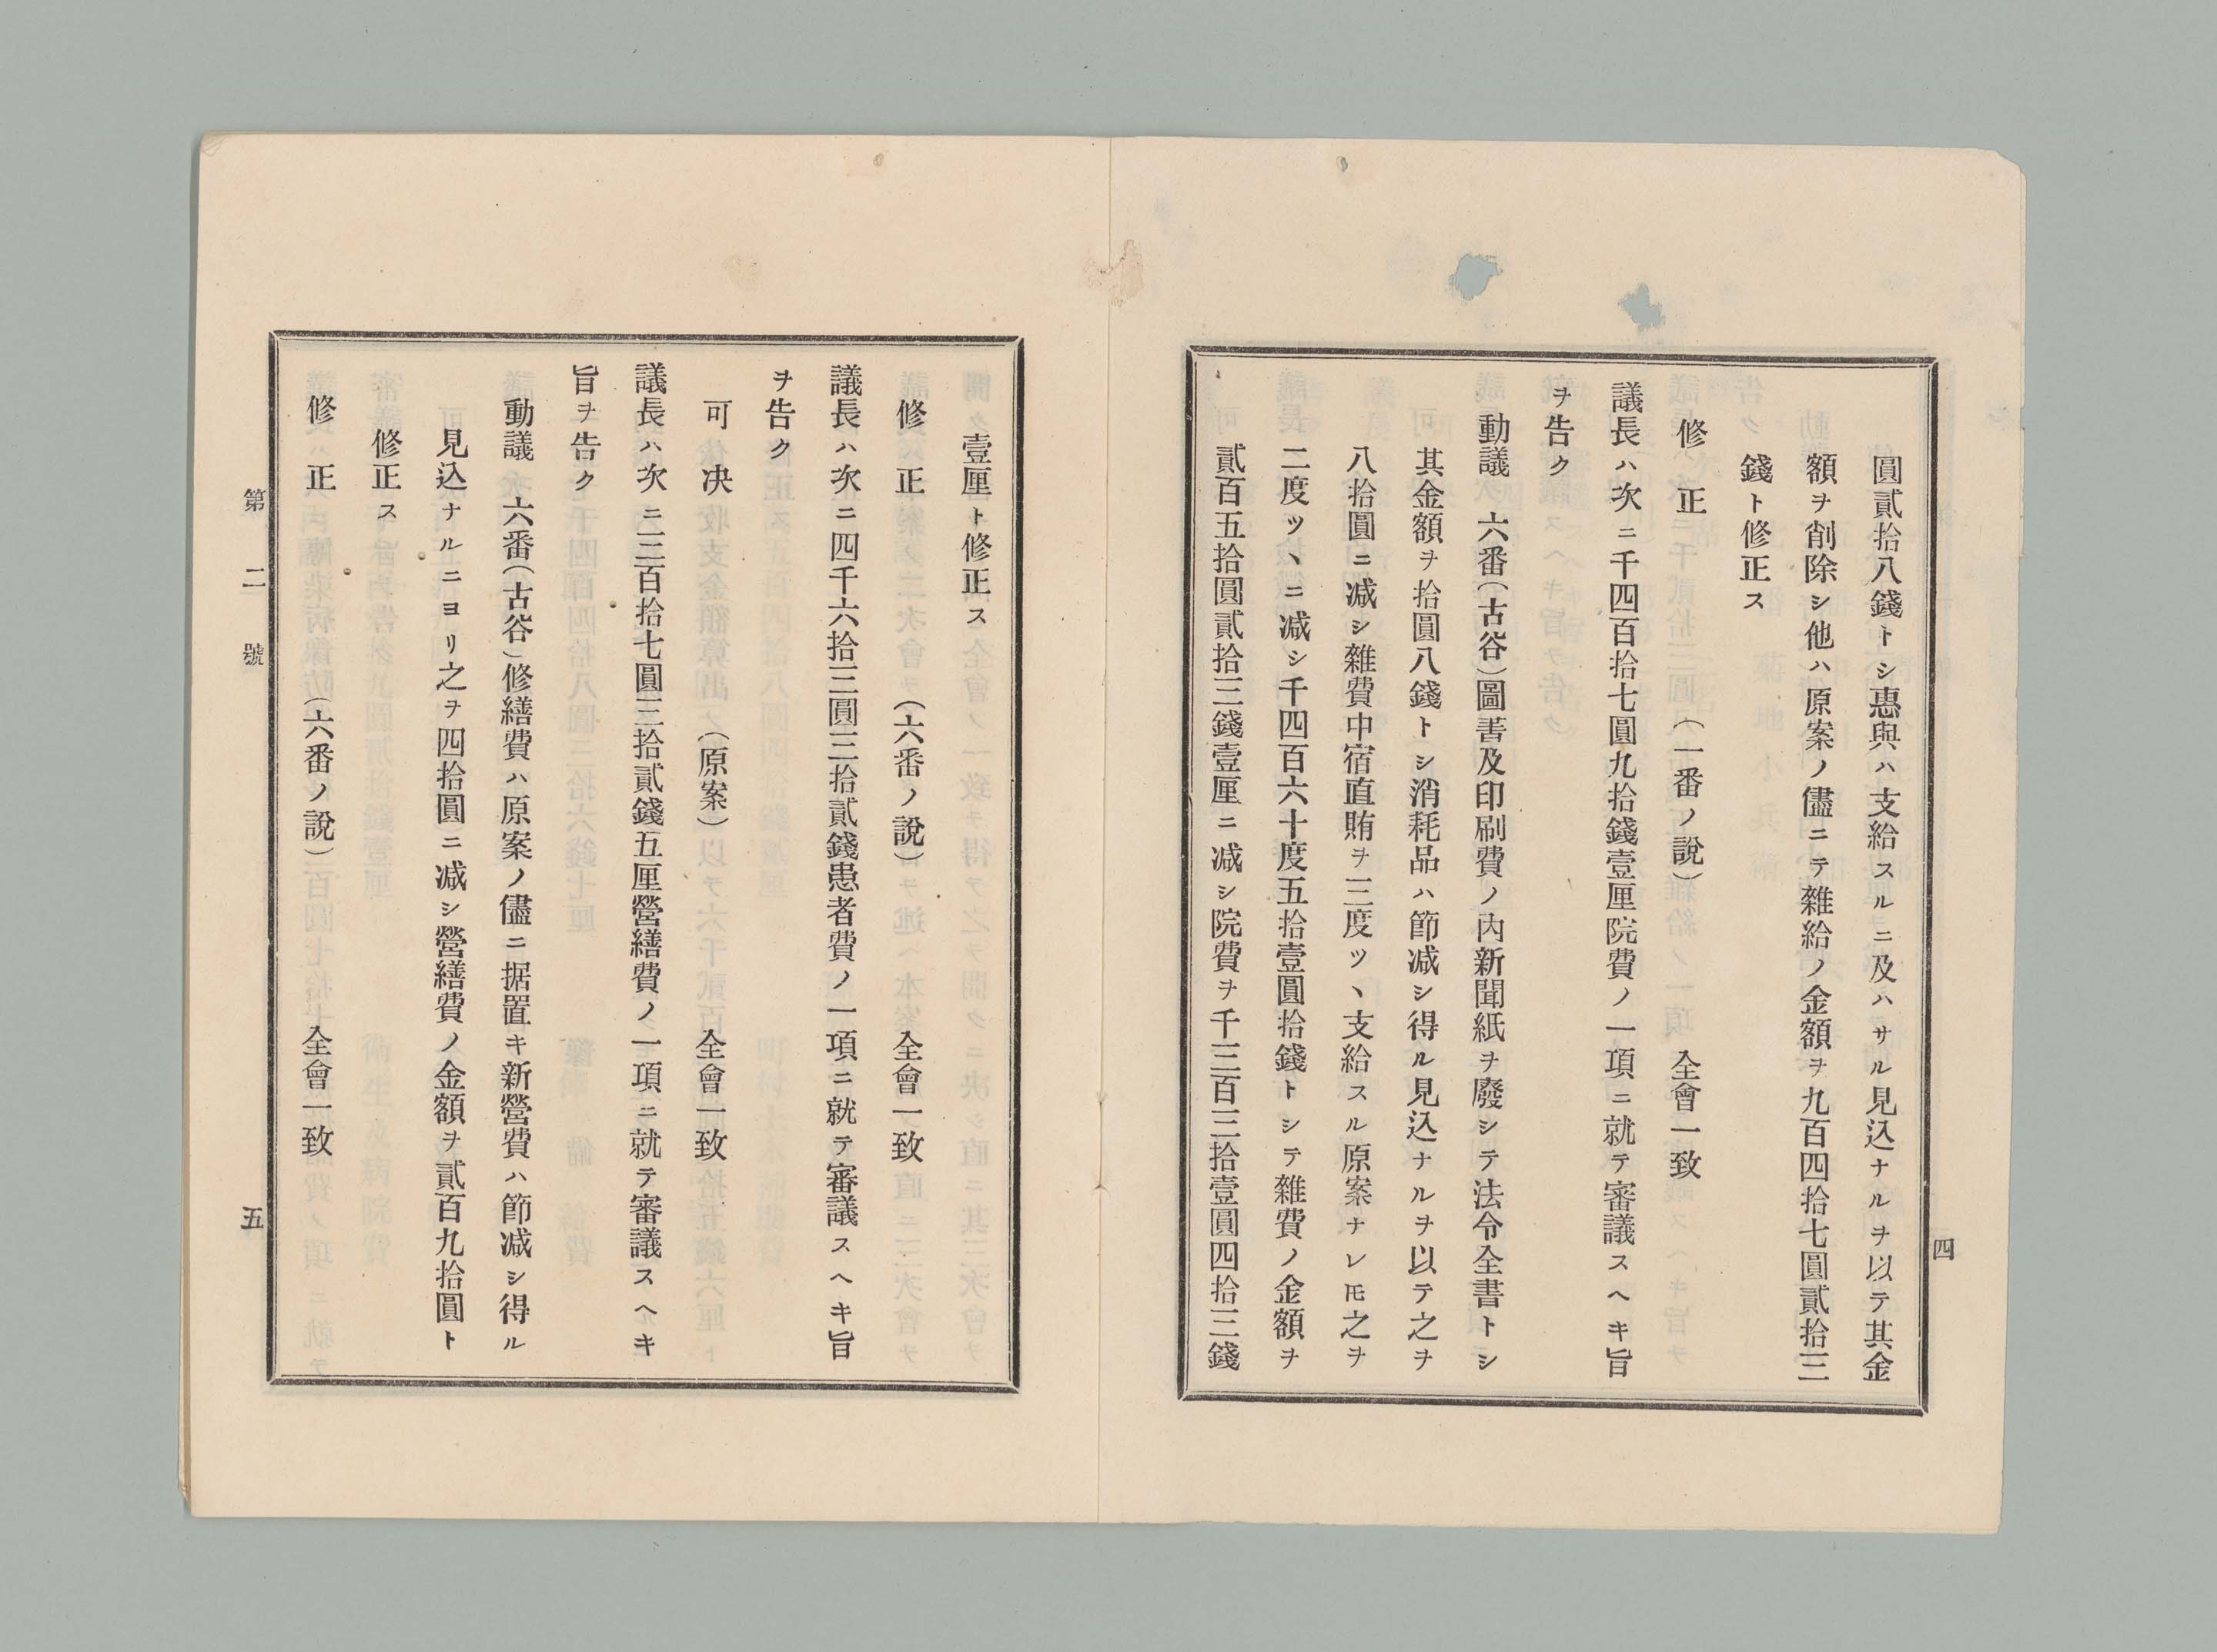 四
圓貳拾八錢トシ惠與ハ支給スルニ及ハサル見込ナルヲ以テ其金
額ヲ削除シ他ハ原案ノ儘ニテ雜給ノ金額ヲ九百四拾七圓貳拾三
錢ト修正ス
修正　（一番ノ說）　全會一致
議長ハ次ニ千四百拾七圓九拾錢壹厘院費ノ一項ニ就テ審議スヘキ旨
ヲ告ク
動議　六番（古谷）圖書及印刷費ノ內新聞紙ヲ廢シテ法令全書トシ
其金額ヲ拾圓八錢トシ消耗品ハ節减シ得ル見込ナルヲ以テ之ヲ
八拾圓ニ减シ雜費中宿直賄ヲ三度ツヽ支給スル原案ナレㇳモ之ヲ
二度ツヽニ减シ千四百六十度五拾壹圓拾錢トシテ雜費ノ金額ヲ
貳百五拾圓貳拾三錢壹厘ニ减シ院費ヲ千三百三拾壹圓四拾三錢
壹厘ト修正ス
修正　（六番ノ說）　全會一致
議長ハ次ニ四千六拾三圓三拾貳錢患者費ノ一項ニ就テ審議スヘキ旨
ヲ告ク
可决　（原案）　全會一致
議長ハ次ニ三百拾七圓三拾貳錢五厘營繕費ノ一項ニ就テ審議スヘキ
旨ヲ告ク
動議　六番（古谷）修繕費ハ原案ノ儘ニ据置キ新營費ハ節减シ得ル
見込ナルニヨリ之ヲ四拾圓ニ减シ營繕費ノ金額ヲ貳百九拾圓ト
修正ス
修正　（六番ノ說）　全會一致
第二號　五